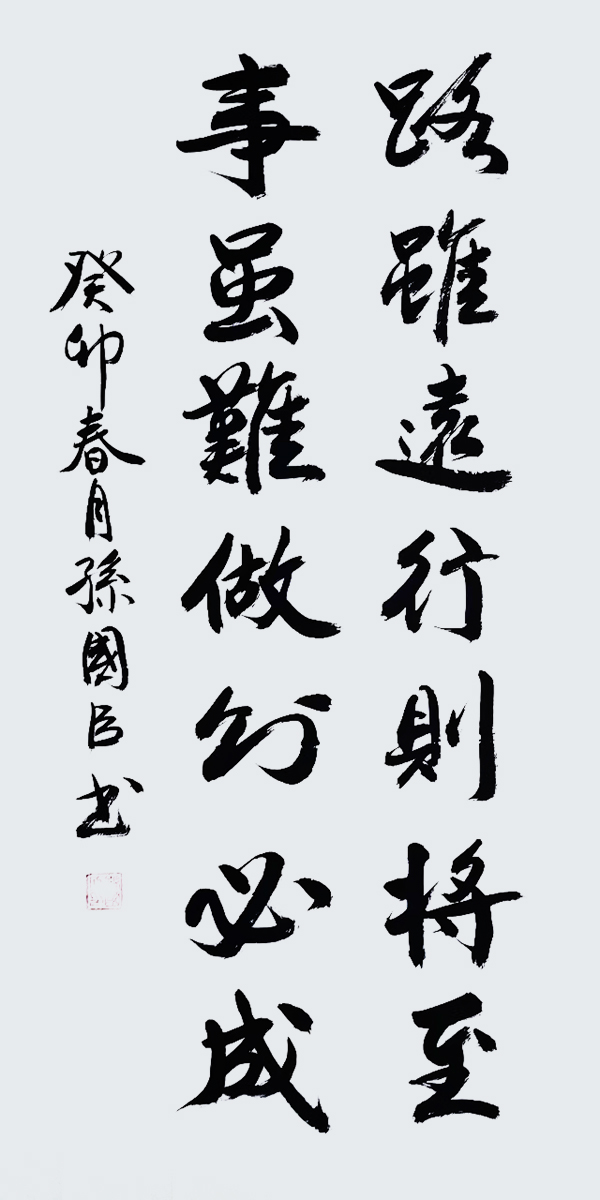 路雖遠行則将至
事虽難做则必成
癸卯春月孫國臣书